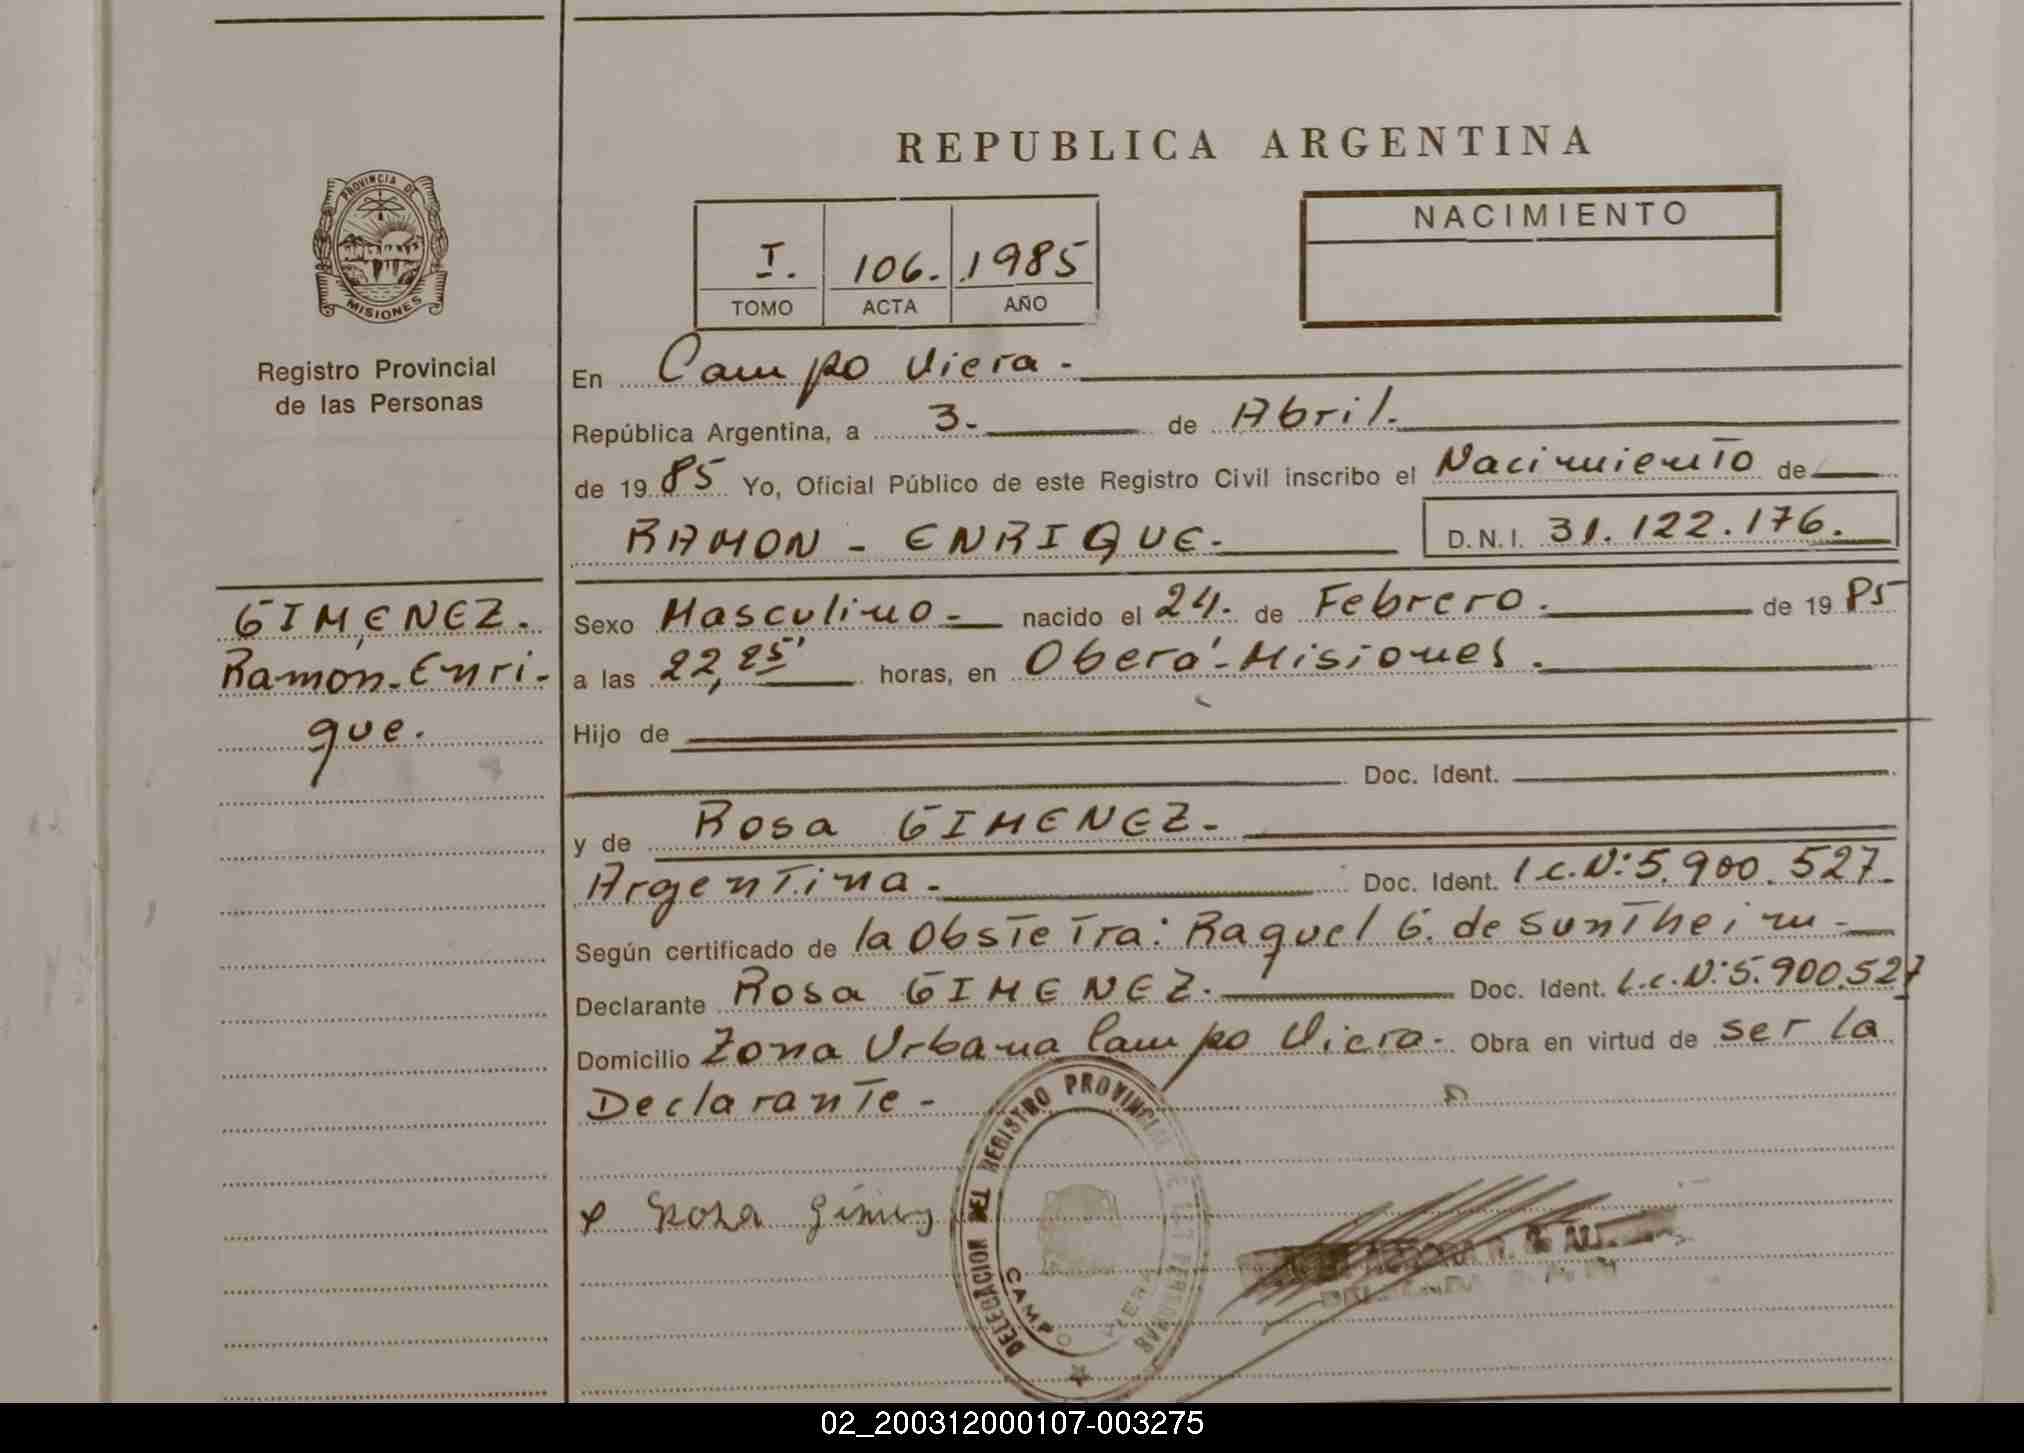 REPUBLICA ARGENTINA
PROVINCIA DE
MISIONES
Registro Provincial
de las Personas
I. 106. 1985
TOMO ACTA AÑO
NACIMIENTO
En Campo Viera.
República Argentina, a 3. de Abril.
de 1985 Yo, Oficial Público de este Registro Civil inscribo el Nacimiento de
RAMON - ENRIQUE. D.N.I. 31.122.176.
GIMENEZ.
Ramon-Enri-
que.
Sexo Masculino nacido el 24. de Febrero. de 1985
a las 22,25' horas, en Oberá-Misiones.
Hijo de
Doc. Ident.
y de Rosa GIMENEZ.
Argentina. Doc. Ident. l.c.N:5.900.527.
Según certificado de la Obstetra: Raquel G. de Suntheim
Declarante Rosa GIMENEZ. Doc. Ident. L.c.N:5.900.527
Domicilio Zona Urbana Campo Viera. Obra en virtud de ser la
Declarante -
DELEGACION DEL REGISTRO PROVINCIAL DE LAS PERSONAS
CAMPO VIERA
Rosa
02_200312000107-003275